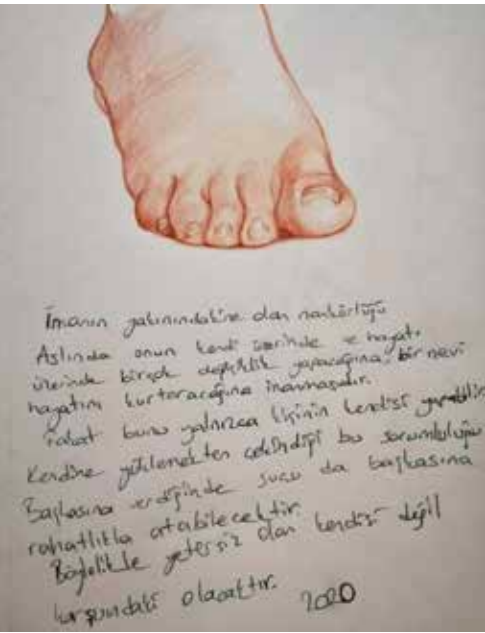 İnsanın yakınındakine olan nankörlüğü
Aslında onun kendi üzerinde ve hayatı
üzerinde birçok değişiklik yapacağına, bir nevi
hayatını kurtaracağına inanmasıdır.
Fakat bunu yalnızca kişinin kendisi yapabilir.
Kendine yüklemekten çekindiği bu sorumluluğu
Başkasına verdiğinde suçu da başkasına
rahatlıkla atabilecektir.
Böylelikle yetersiz olan kendisi değil
karşındaki olacaktır.
2020